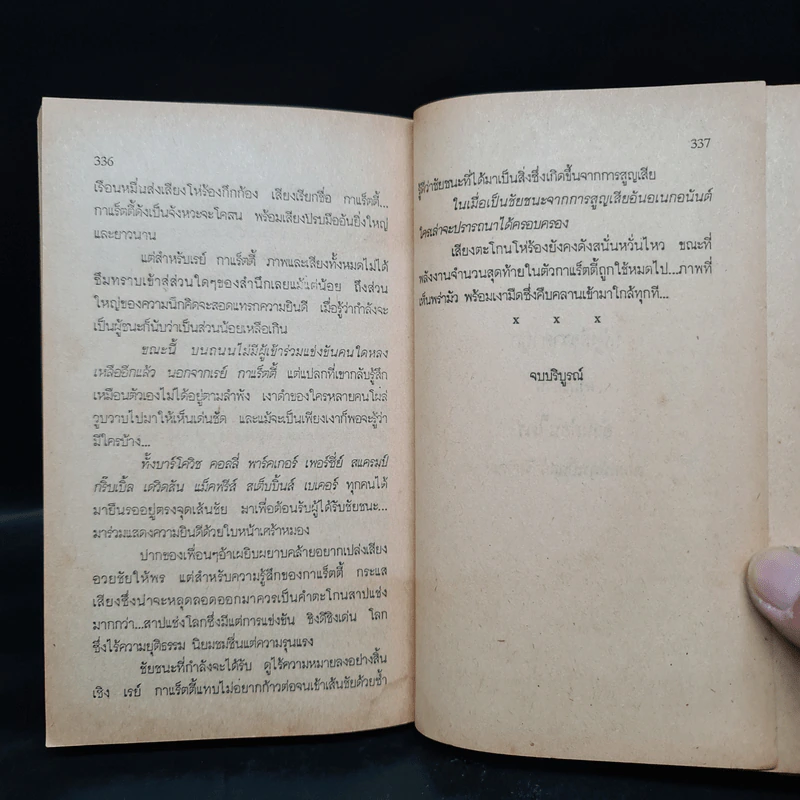 336
เรือนหมื่นส่งเสียงโห่ร้องกึกก้อง เสียงเรียกชื่อ กาแร็ตตี้...
กาแร็ตตี้ดังเป็นจังหวะจะโคลน พร้อมเสียงปรบมืออันยิ่งใหญ่
และยาวนาน
แต่สำหรับเรย์ กาแร็ตตี้ ภาพและเสียงทั้งหมดไม่ได้
ซึมทราบเข้าสู่ส่วนใดๆของสำนึกเลยแม้แต่น้อย ถึงส่วน
ใหญ่ของความนึกคิดจะสอดแทรกความยินดี เมื่อรู้ว่ากำลังจะ
เป็นผู้ชนะก็นับว่าเป็นส่วนน้อยเหลือเกิน
ขณะนี้ บนถนนไม่มีผู้เข้าร่วมแข่งขันคนใดหลง
เหลืออีกแล้ว นอกจากเรย์ กาแร็ตตี้ แต่แปลกที่เขากลับรู้สึก
เหมือนตัวเองไม่ได้อยู่ตามลำพัง เงาดำของใครหลายคนโผล่
วูบวาบไปมาให้เห็นเด่นชัด และแม้จะเป็นเพียงเงาก็พอจะรู้ว่า
มีใครบ้าง...
ทั้งบาร์โควิช คอลลี่ พาร์คเกอร์ เพอร์ซี่ย์ สแครมป์
กริ๊บเบิ้ล เดวิดสัน แม็คฟรีส์ สเต็บบิ้นส์ เบเคอร์ ทุกคนได้
มายืนรออยู่ตรงจุดเส้นชัย มาเพื่อต้อนรับผู้ได้รับชัยชนะ...
มาร่วมแสดงความยินดีด้วยใบหน้าเศร้าหมอง
ปากของเพื่อนๆอ้าเผยิบผยาบคล้ายอยากเปล่งเสียง
อวยชัยให้พร แต่สำหรับความรู้สึกของกาแร็ตตี้ กระแส
เสียงซึ่งน่าจะหลุดลอดออกมาควรเป็นคำตะโกนสาปแช่ง
มากกว่า...สาปแช่งโลกซึ่งมีแต่การแข่งขัน ชิงดีชิงเด่น โลก
ซึ่งไร้ความยุติธรรม นิยมชมชื่นแต่ความรุนแรง
ชัยชนะที่กำลังจะได้รับ ดูไร้ความหมายลงอย่างสิ้น
เชิง เรย์ กาแร็ตตี้แทบไม่อยากก้าวต่อจนเข้าเส้นชัยด้วยซ้ำ
337
รู้ดีว่าชัยชนะที่ได้มาเป็นสิ่งซึ่งเกิดขึ้นจากการสูญเสีย
ในเมื่อเป็นชัยชนะจากการสูญเสียอันอเนกอนันต์
ใครเล่าจะปรารถนาได้ครอบครอง
เสียงตะโกนโห่ร้องยังคงดังสนั่นหวั่นไหว ขณะที่
พลังงานจำนวนสุดท้ายในตัวกาแร็ตตี้ถูกใช้หมดไป...ภาพที่
เห็นพร่ามัว พร้อมเงามืดซึ่งคืบคลานเข้ามาใกล้ทุกที...
x x x
จบบริบูรณ์